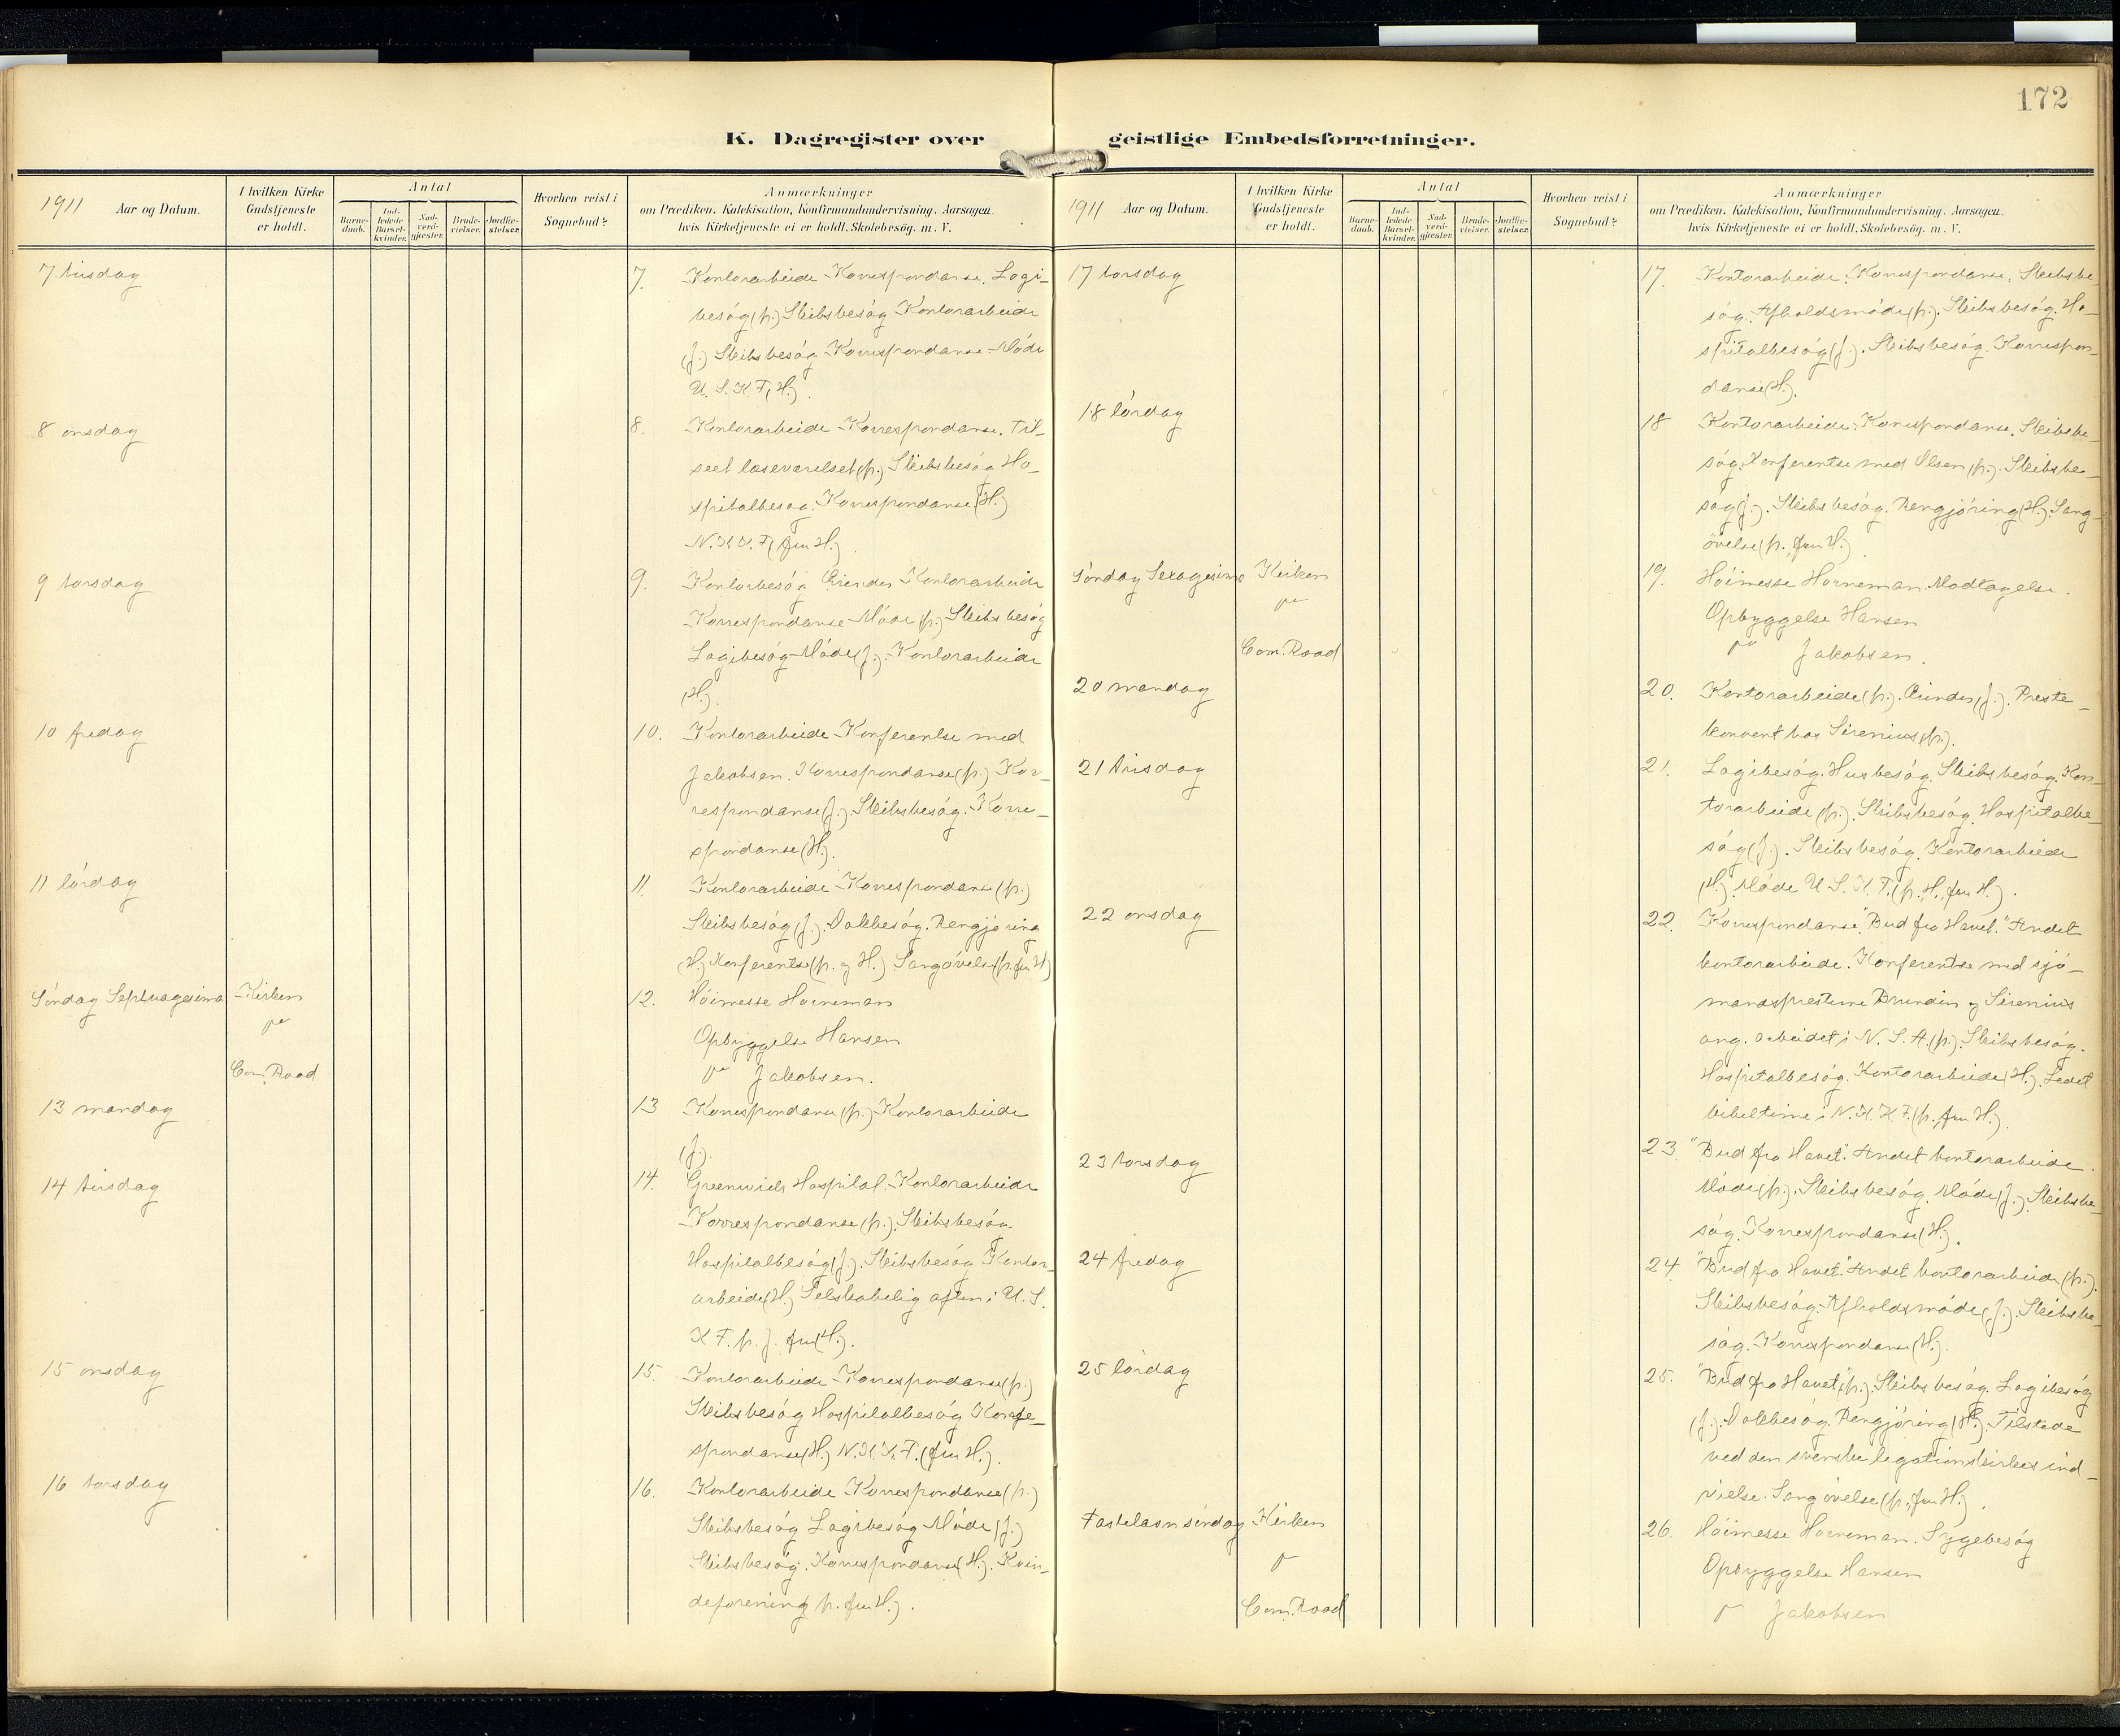 172
K. Dagregister over geistlige Embedsforretninger.
1911 Aar og Datum.
I hvilken Kirke Gudstjeneste er holdt.
Antal
Barnedaab.
Indledede Barselkvinder.
Nadverdgjæster.
Brudevielser.
Jordfæstelser.
Hvorhen reist i Sognebud?
Anmærkninger
om Prædiken, Katekisation, Konfirmandundervisning, Aarsagen,
hvis Kirketjeneste ei er holdt, Skolebesög, m. V.
7 tirsdag
7. Kontorarbeide - Korrespondanse. Logi-
besøg (p.) Skibsbesøg Kontorarbeide
(J.) Skibsbesøg - Korrespondanse - Møde
U. S. K. F. (H.).
8 onsdag
8. Kontorarbeide - Korrespondanse. Til-
seet læseværelset (p.) Skibsbesøg Ho-
spitalbesøg. Korrespondanse (H.)
N. K. K. F. (fru H.).
9 torsdag
9. Kontorbesøg Ærinder Kontorarbeide
Korrespondanse - Møde (p.) Skibsbesøg
Logibesøg - Møde (J.). Kontorarbeide
(H.).
10 fredag
10. Kontorarbeide - Konferentse med
Jakobsen. Korrespondanse (p.) Kor-
respondanse (J.). Skibsbesøg. Korre-
spondanse (H.).
11 lørdag
11. Kontorarbeide - Korrespondanse (p.)
Skibsbesøg (J.). Dokbesøg. Rengjøring
(H.) Konferentse (p. og H.) Sangøvelse (p. fru H.)
Søndag Septuagesima Kirken
12. Høimesse Horneman
Opbyggelse Hansen
Com. Road
Jakobsen.
13 mandag
13 Korrespondanse (p.) Kontorarbeide
(J.).
14 tirsdag
14. Greenwich Hospital. Kontorarbeide
Korrespondanse (p.). Skibsbesøg.
Hospitalbesøg (J.). Skibsbesøg Kontor-
arbeide (H.) Selskabelig aften i U. S.
K. F. p. J. fru (H.).
15 onsdag
15. Kontorarbeide - Korrespondanse (p.)
Skibsbesøg Hospitalbesøg Korre-
spondanse (H.) N. K. K. F. (fru H.).
16 torsdag
16. Kontorarbeide Korrespondanse (p.)
Skibsbesøg Logibesøg - Møde (J.)
Skibsbesøg. Korrespondanse (H.). Kvin-
deforening p. fru H.).
1911 Aar og Datum.
I hvilken Kirke Gudstjeneste er holdt.
Antal
Barnedaab.
Indledede Barselkvinder.
Nadverdgjæster.
Brudevielser.
Jordfæstelser.
Hvorhen reist i Sognebud?
Anmærkninger
om Prædiken, Katekisation, Konfirmandundervisning, Aarsagen,
hvis Kirketjeneste ei er holdt, Skolebesög, m. V.
17 torsdag
17. Kontorarbeide. Korrespondanse. Skibsbe-
søg. Afholdsmøde (p.). Skibsbesøg. Ho-
spitalbesøg (J.). Skibsbesøg. Korrespon-
danse (H.).
18 lørdag
18 Kontorarbeide. Korrespondanse. Skibsbe-
søg. Konferentse med Olsen (p.). Skibsbe-
søg (J.). Skibsbesøg. Rengjøring (H.). Sang-
øvelse (p., fru H.).
Søndag Sexagesima Kirken
19. Høimesse Horneman. Modtagelse.
Opbyggelse Hansen
Com. Road
Jakobsen.
20 mandag
20. Kontorarbeide (p.). Ærinder (J.). Preste-
konvent hos Sirenius (p.).
21 tirsdag
21. Logibesøg. Husbesøg. Skibsbesøg. Kon-
torarbeide (p.). Skibsbesøg. Hospitalbe-
søg (J.). Skibsbesøg. Kontorarbeide
(H.). Møde U. S. K. F. (p., H., fru H.).
22 onsdag
22. Korrespondanse. "Bud fra Havet." Andet
kontorarbeide. Konferentse med sjø-
mandspresterne Brundin og Sirenius
ang. arbeidet i N. S. A. (p.). Skibsbesøg.
Hospitalbesøg. Kontorarbeide (H.). Ledet
bibeltime i N. K. K. F. (p. fru H.).
23 torsdag
23. "Bud fra Havet". Andet kontorarbeide.
Møde (p.). Skibsbesøg. Møde (J.). Skibsbe-
søg. Korrespondanse (H.).
24 fredag
24 "Bud fra Havet." Andet kontorarbeide (p.).
Skibsbesøg. Afholdsmøde (J.). Skibsbe-
søg. Korrespondanse (H.).
25 lørdag
25. "Bud fra Havet" (p.). Skibsbesøg. Logibesøg
(J.). Dokbesøg. Rengjøring (H.). Tilstede
ved den svenske legationskirkes ind-
vielse. Sangøvelse (p., fru H.).
Fastelavn søndag Kirken
26. Høimesse Horneman. Sygebesøg
Opbyggelse Hansen
Com. Road
Jakobsen